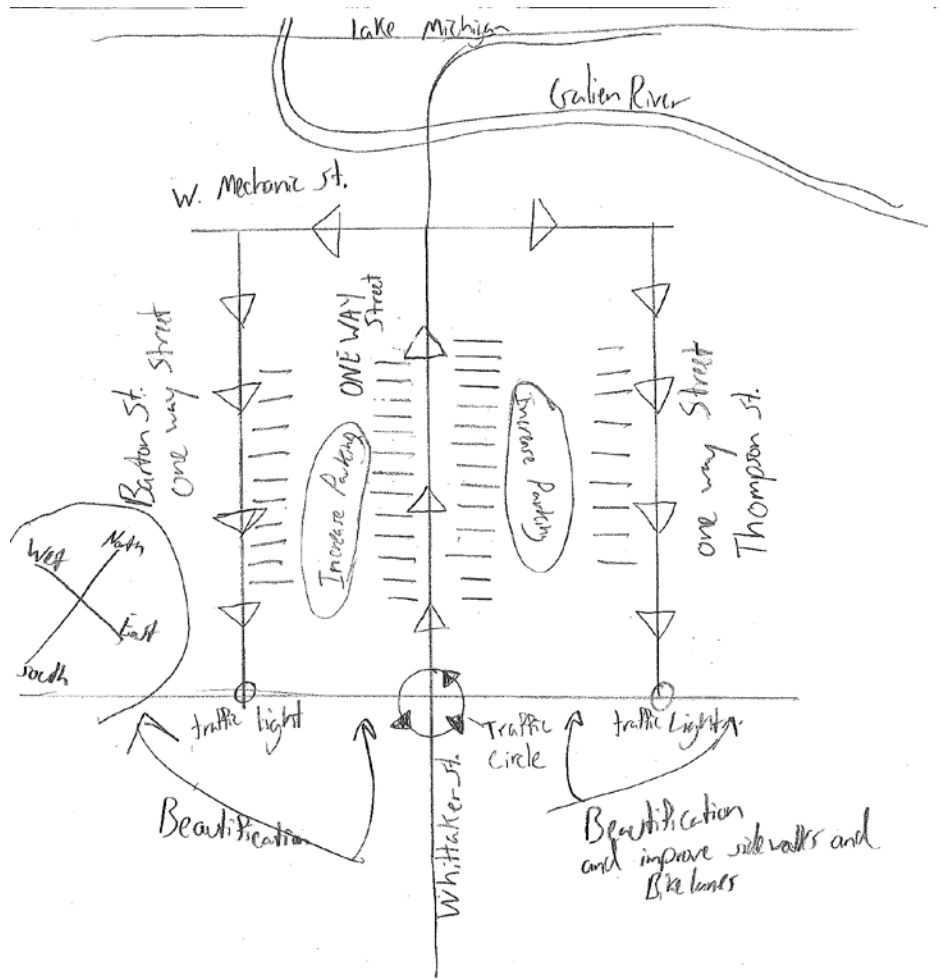 Lake Michigan
Galien River
W. Mechanic St.
ONE WAY
Street
Barton St.
one way Street
Increase Parking
Increase Parking
one way Street
Thompson St.
North
West
East
South
traffic light
Traffic
circle
traffic Light
Whittaker St.
Beautification
Beautification
and improve sidewalks and
Bike lanes